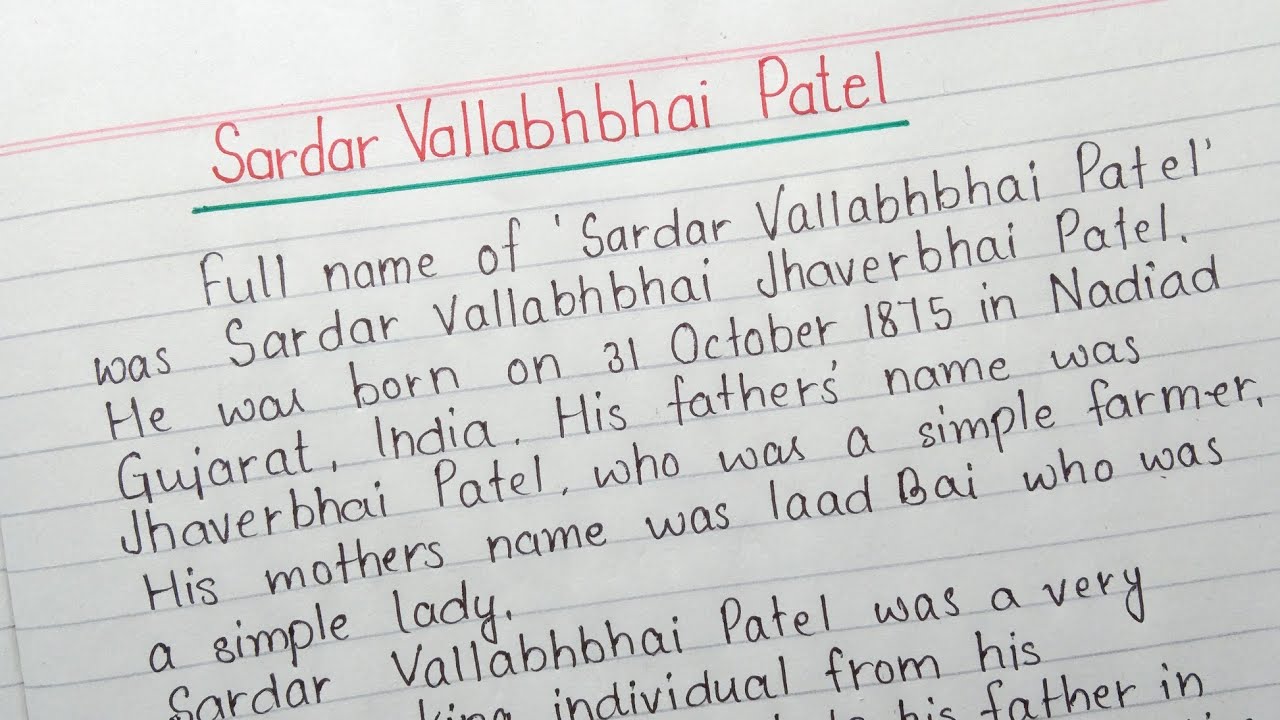 Sardar Vallabhbhai Patel
Full name of 'Sardar Vallabhbhai Patel'
was Sardar Vallabhbhai Jhaverbhai Patel.
He was born on 31 October 1875 in Nadiad
Gujarat, India. His fathers' name was
Jhaverbhai Patel, who was a simple farmer.
His mothers name was laad Bai who was
a simple lady.
Sardar Vallabhbhai Patel was a very
individual from his
his father in